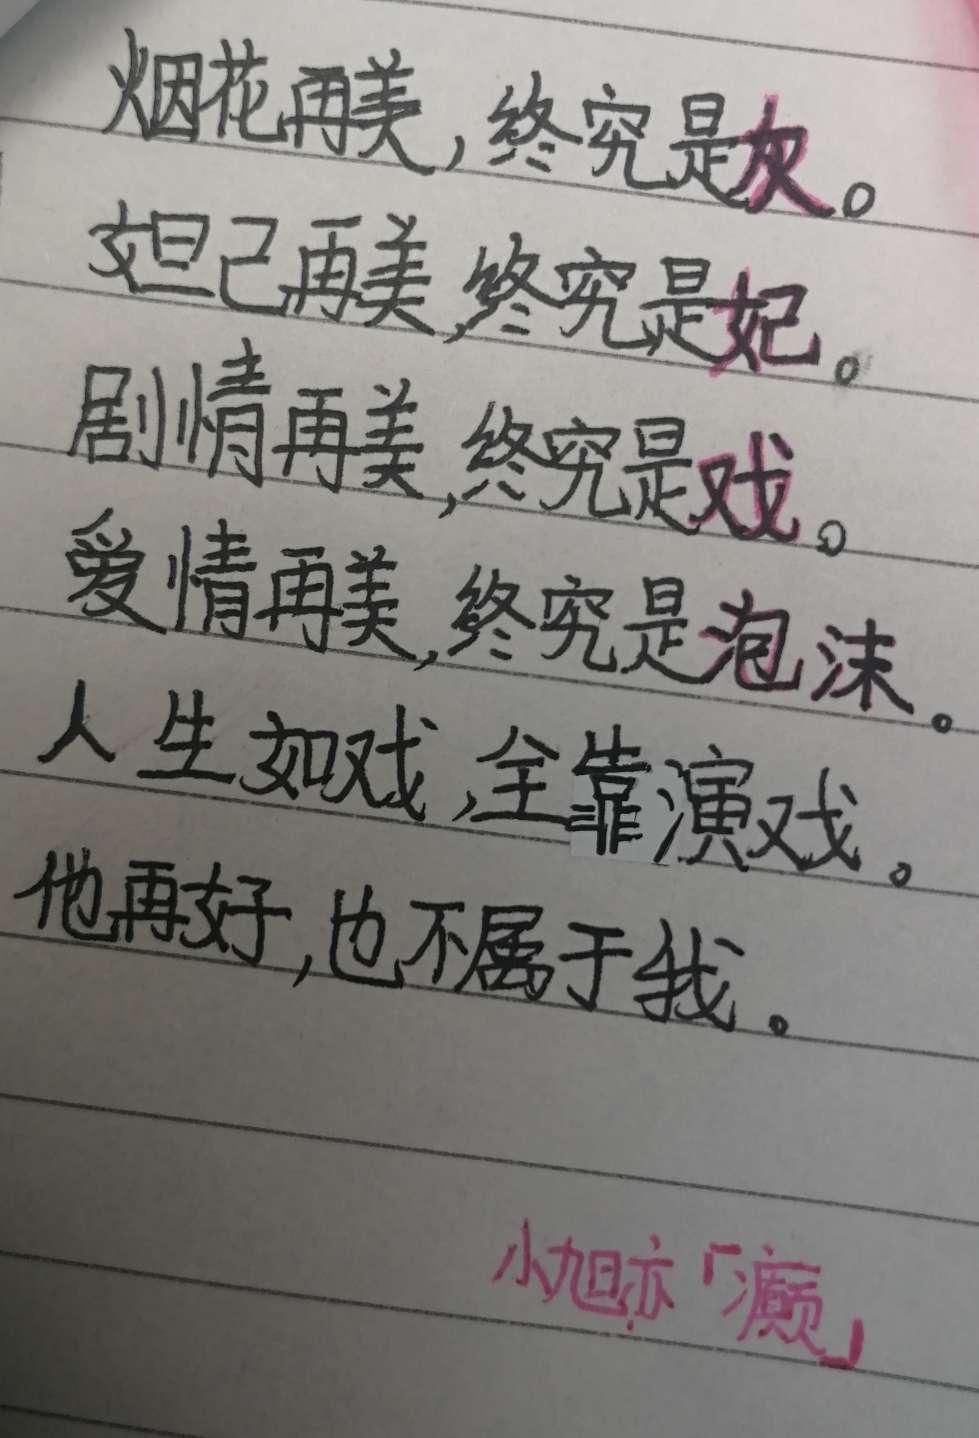 烟花再美,终究是灰。
妲己再美,终究是妃。
剧情再美,终究是戏。
爱情再美,终究是泡沫。
人生如戏,全靠演戏。
他再好,也不属于我。
小旭亦「癫」